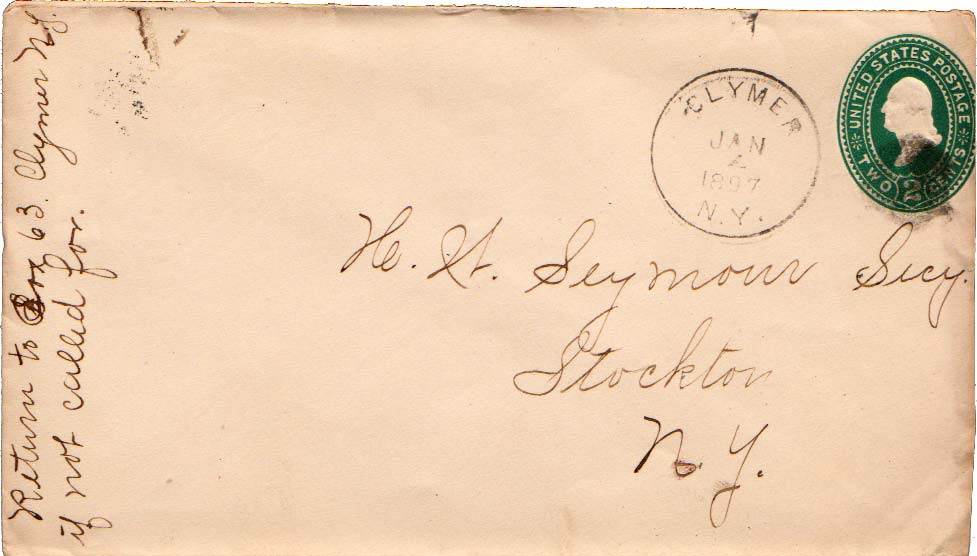 Return to Box 63. Clymer N.Y.
if not called for.
CLYMER
JAN
4
1897
N.Y.
UNITED STATES POSTAGE
TWO 2 CENTS
H. Seymour Secy.
Stockton
N.Y.